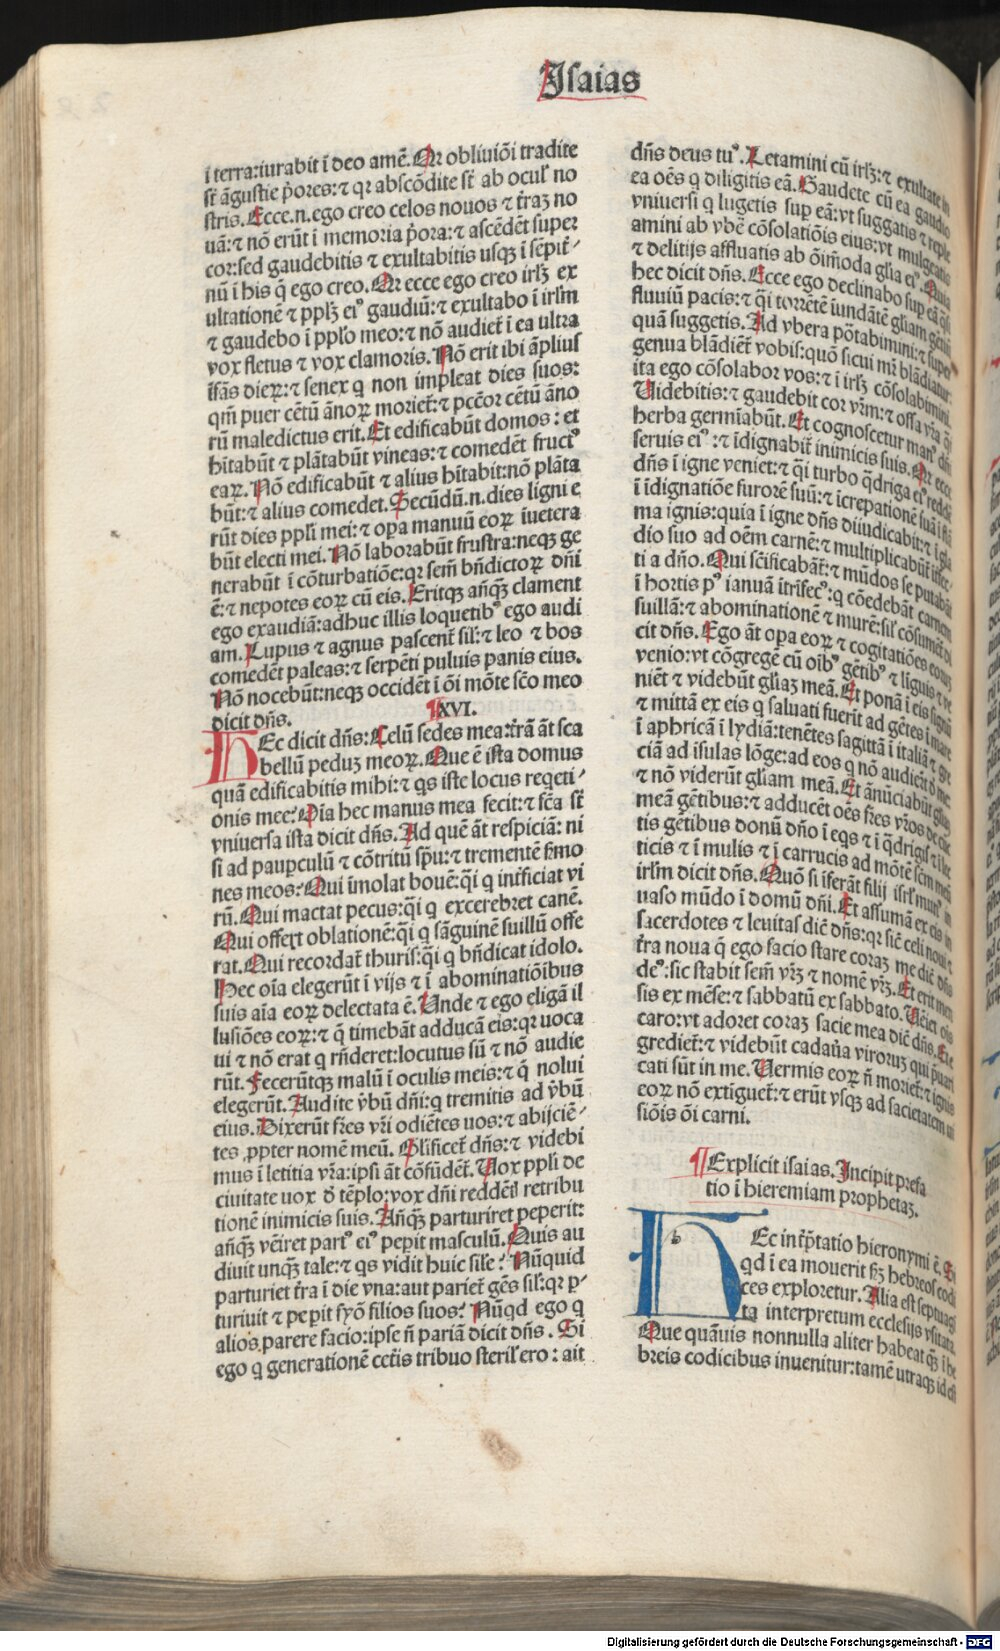 Isaias
ī terra:iurabit ī deo amē. Qr obliuiōi tradite
st̄ āgustie p̄ores:⁊ qr abscōdite st̄ ab ocul' no
stris. Ecce.n.ego creo celos nouos ⁊ t̄raꝫ no
uā:⁊ nō erūt ī memoria p̄ora:⁊ ascēdēt super
cor:sed gaudebitis ⁊ exultabitis usqꝫ ī sēpit̄
nū ī his q̄ ego creo. Qr ecce ego creo irlꝫ ex
ultationē ⁊ pplꝫ eiꝰ gaudiū:⁊ exultabo ī irl̄m
⁊ gaudebo ī pp̄lo meo:⁊ nō audiet̄ ī ea ultra
vox fletus ⁊ vox clamoris. Nō erit ibi āplius
īfās dieꝝ:⁊ senex q non impleat dies suos:
qm̄ puer cētū ānoꝝ moriet̄:⁊ pc̄cōr cētū āno
rū maledictus erit. Et edificabūt domos : et
hītabūt ⁊ plātabūt vineas:⁊ comedēt fructꝰ
eaꝝ. Nō edificabūt ⁊ alius hītabit:nō plāta
būt:⁊ alius comedet. Secūdū.n.dies ligni e
rūt dies ppl̄i mei:⁊ oꝑa manuū eoꝝ īuetera
būt electi mei. Nō laborabūt frustra:neqꝫ ge
nerabūt ī cōturbatiōe:qr sem̄ bn̄dictoꝝ dn̄i
ē:⁊ nepotes eoꝝ cū eis. Eritqꝫ añqꝫ clament
ego exaudiā:adhuc illis loquetibꝰ ego audi
am. Lupus ⁊ agnus pascent̄ sil':⁊ leo ⁊ bos
comedēt paleas:⁊ serpēti puluis panis eius.
Nō nocebūt:neqꝫ occidēt ī ōi mōte sc̄o meo
dicit dn̄s. LXVI.
HEc dicit dn̄s: Celū sedes mea:t̄rā āt sca
bellū peduꝫ meoꝝ. Que ē ista domus
quā edificabitis mihi:⁊ qs iste locus reqeti
onis mee? Oīa hec manus mea fecit:⁊ fc̄a st̄
vniuersa ista dicit dn̄s. Ad quē āt respiciā: ni
si ad pauꝑculū ⁊ cōtritū sp̄u:⁊ trementē s̄mo
nes meos? Qui īmolat bouē:q̄i q int̄ficiat vi
rū. Qui mactat pecus:q̄i q excerebret canē.
Qui offert oblationē:q̄i q sāguinē suillū offe
rat. Qui recordat̄ thuris:q̄i q bn̄dicat idolo.
Hec oīa elegerūt ī vijs ⁊ ī abominatiōibus
suis aīa eoꝝ delectata ē. Unde ⁊ ego eligā il
lusiōes eoꝝ:⁊ q̄ timebāt adducā eis:qr uoca
ui ⁊ nō erat q rn̄deret:locutus sū ⁊ nō audie
rūt. Fecerūtqꝫ malū ī oculis meis:⁊ q̄ nolui
elegerūt. Audite v̄bū dn̄i:q tremitis ad v̄bū
eius. Dixerūt fr̄es vr̄i odiētes uos:⁊ abijciē
tes ꝓpter nomē meū. Gl̄ificet̄ dn̄s:⁊ videbi
mus ī letitia vr̄a:ipsi āt cōfūdēt̄. Uox ppl̄i de
ciuitate uox d̄ tēplo:vox dn̄i reddēt̄ retribu
tionē inimicis suis. Añqꝫ parturiret peperit:
añqꝫ vēiret partꝰ eiꝰ peꝑit masculū. Quis au
diuit unqꝫ tale:⁊ qs vidit huic sil'e? Nūquid
parturiet t̄ra ī die vna:aut pariet̄ gēs sil':qr ꝑ
turiuit ⁊ peꝑit syō filios suos? Nūqd ego q
alios parere facio:ipse n̄ pariā dicit dn̄s. Si
ego q generationē cet̄is tribuo steril' ero : ait
dn̄s deus tuꝰ. Letamini cū irlꝫ:⁊ exultate in
ea oēs q diligitis eā. Gaudete cū ea gaudio
vniuersi q lugetis suꝑ eā:vt suggatis ⁊ reple
amini ab vbē cōsolatiōis eius:vt mulgeatis
⁊ delitijs affluatis ab ōimoda gl̄ia eiꝰ. Quia
hec dicit dn̄s. Ecce ego declinabo suꝑ eā q̄si
fluuiū pacis:⁊ q̄i torrētē īundātē gl̄iam gētiū
quā suggetis. Ad vbera pōtabimini:⁊ super
genua blādiēt̄ vobis:quō sicui mr̄ blādiatur
ita ego cōsolabor vos:⁊ ī irlꝫ cōsolabimini.
Uidebitis:⁊ gaudebit cor vr̄m:⁊ ossa vr̄a q̄i
herba germīabūt. Et cognoscetur manꝰ dn̄i
seruis eiꝰ:⁊ īdignabit̄ inimicis suis. Qr ecce
dn̄s ī igne veniet:⁊ q̄i turbo q̄driga eiꝰ reddē
ī īdignatiōe furorē suū:⁊ īcrepationē suā ī flā
ma ignis:quia ī igne dn̄s diiudicabit:⁊ ī gla
dio suo ad oēm carnē:⁊ multiplicabūt̄ īt̄fec
ti a dn̄o. Qui sc̄ificabāt̄:⁊ mūdos se putabāt
ī hortis pꝰ ianuā ītrīsecꝰ:q cōedebāt carnem
suillā:⁊ abominationē ⁊ murē:sil' cōsumēt̄ di
cit dn̄s. Ego āt oꝑa eoꝝ ⁊ cogitatiōes eoruꝫ
venio:vt cōgregē cū oībꝰ gētibꝰ ⁊ liguis ⁊ ve
niēt ⁊ videbūt gl̄iaꝫ meā. Et ponā ī eis signū
⁊ mittā ex eis q saluati fuerit ad gētes ī mare
ī aphricā ī lydiā:tenētes sagittā ī italiā ⁊ gre
ciā ad īsulas lōge:ad eos q nō audierūt d̄ me
⁊ nō viderūt gl̄iam meā. Et ānūciabūt gl̄iaꝫ
meā gētibus:⁊ adducēt oēs fr̄es vr̄os de cūc
tis gētibus donū dn̄o ī eqs ⁊ ī q̄drigis ⁊ ī lec
ticis ⁊ ī mulis ⁊ ī carrucis ad mōtē sc̄m meū
irl̄m dicit dn̄s. Quō si īferāt filij isrl' munꝰ in
uaso mūdo ī domū dn̄i. Et assumā ex eis in
sacerdotes ⁊ leuitas dic̄ dn̄s:qr sic̄ celi noui ⁊
t̄ra noua q̄ ego facio stare coraꝫ me dic̄ dn̄s
deꝰ:sic stabit sem̄ vr̄ꝫ ⁊ nomē vr̄ꝫ. Et erit men
sis ex mēse:⁊ sabbatū ex sabbato. Uēiet ois
caro:vt adoret coraꝫ facie mea dic̄ dn̄s. Et e
gredient̄:⁊ videbūt cadau̓a viroruꝫ qui p̄uari
cati sūt in me. Uermis eoꝝ n̄ moriet̄:⁊ ignis
eoꝝ nō extiguet̄:⁊ erūt vsqꝫ ad sacietatem ui
siōis ōi carni.
¶ Explicit isaias. Incipit prefa
tio ī hieremiam prophetaꝫ.
HEc int̄p̄tatio hieronymi ē. Si
qd ī ea mouerit s̄ꝫ hebreos codi
ces exploretur. Alia est septuagi
ta interpretum ecclesijs vsitata.
Que quāuis nonnulla aliter habeat qꝫ ī he
breis codicibus inuenitur:tamē utraqꝫ id est
Digitalisierung gefördert durch die Deutsche Forschungsgemeinschaft - DFG